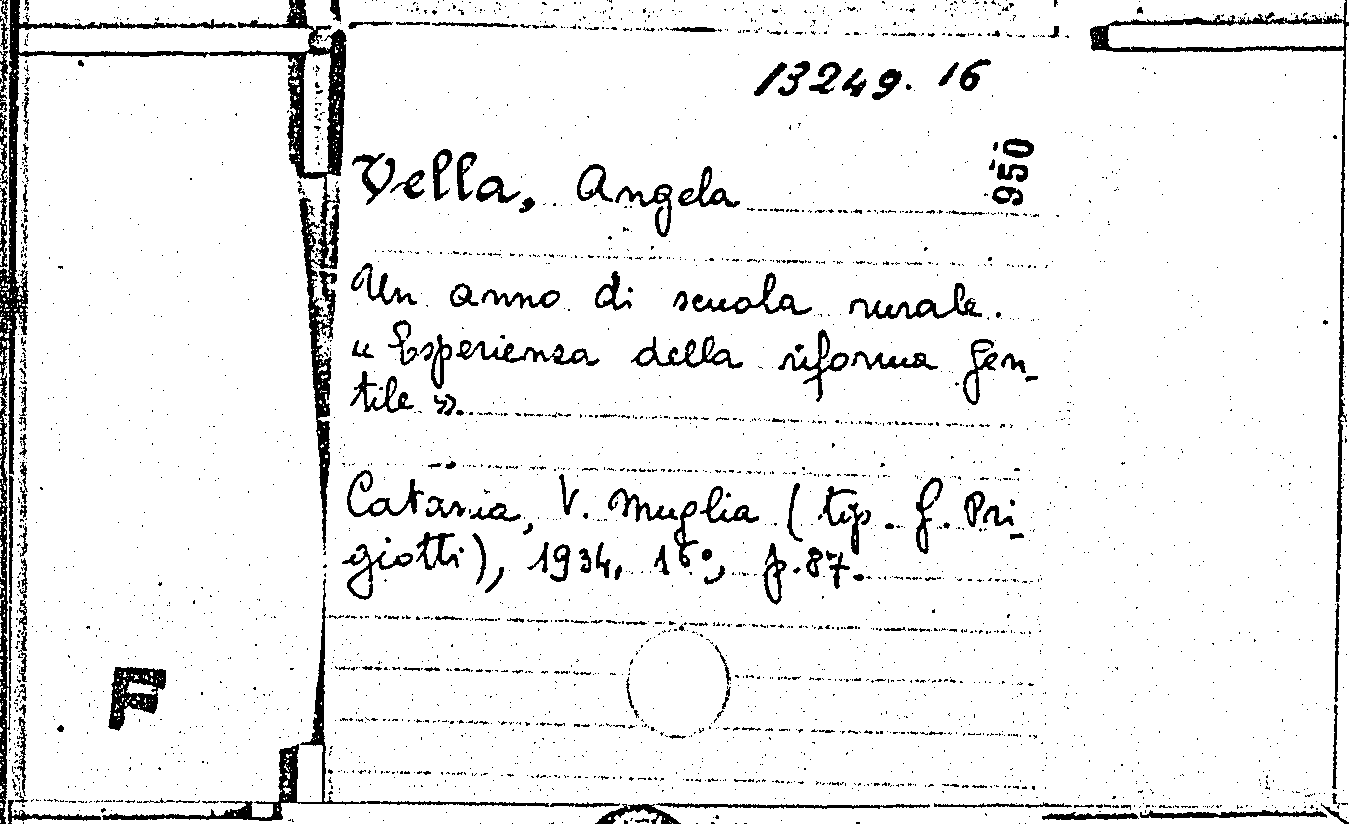 13249. 16
950
Vella, Angela
Un anno di scuola rurale.
« Esperienza della riforma Gen-
tile ».
Catania, V. Muglia (tip. G. Pri-
giotti), 1934, 16°, p. 87.
F